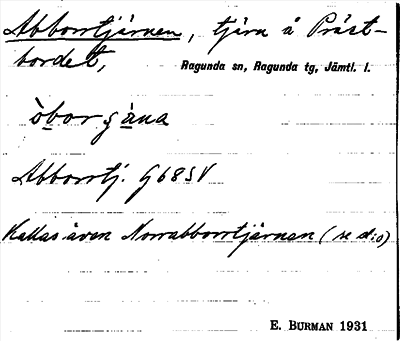 Abborrtjärnen, tjärn å Präst-
bordet,
Ragunda sn, Ragunda tg, Jämtl. l.
òborşàna
Abborrtj. G68SV
Kallas även Norrabborrtjärnan (se d:o)
E. BURMAN 1931